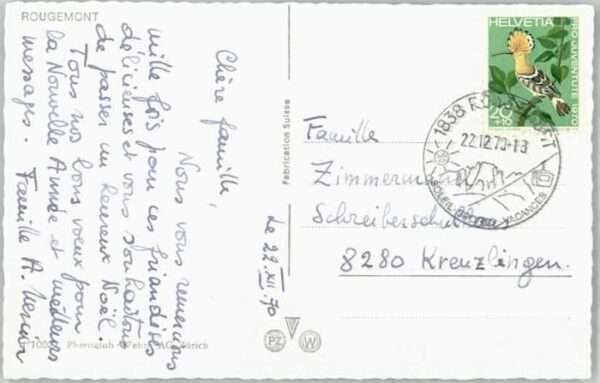 ROUGEMONT
Chère famille,
Nous vous remercions
mille fois pour ces friandises
délicieuses et vous souhaitons
de passer un heureux Noël.
Tous nos bons vœux pour
la Nouvelle Année et meilleurs
messages. Famille A.
Le 22.XII.70
Fabrication Suisse
HELVETIA
PRO JUVENTUTE 1970
20
+10
1838 ROUGEMONT
22.12.70-18
SOLEIL VACANCES
Famille
Zimmermann
Schreiberschulh
8280 Kreuzlingen.
PZ W
Phototypie - Wehrli AG Zürich